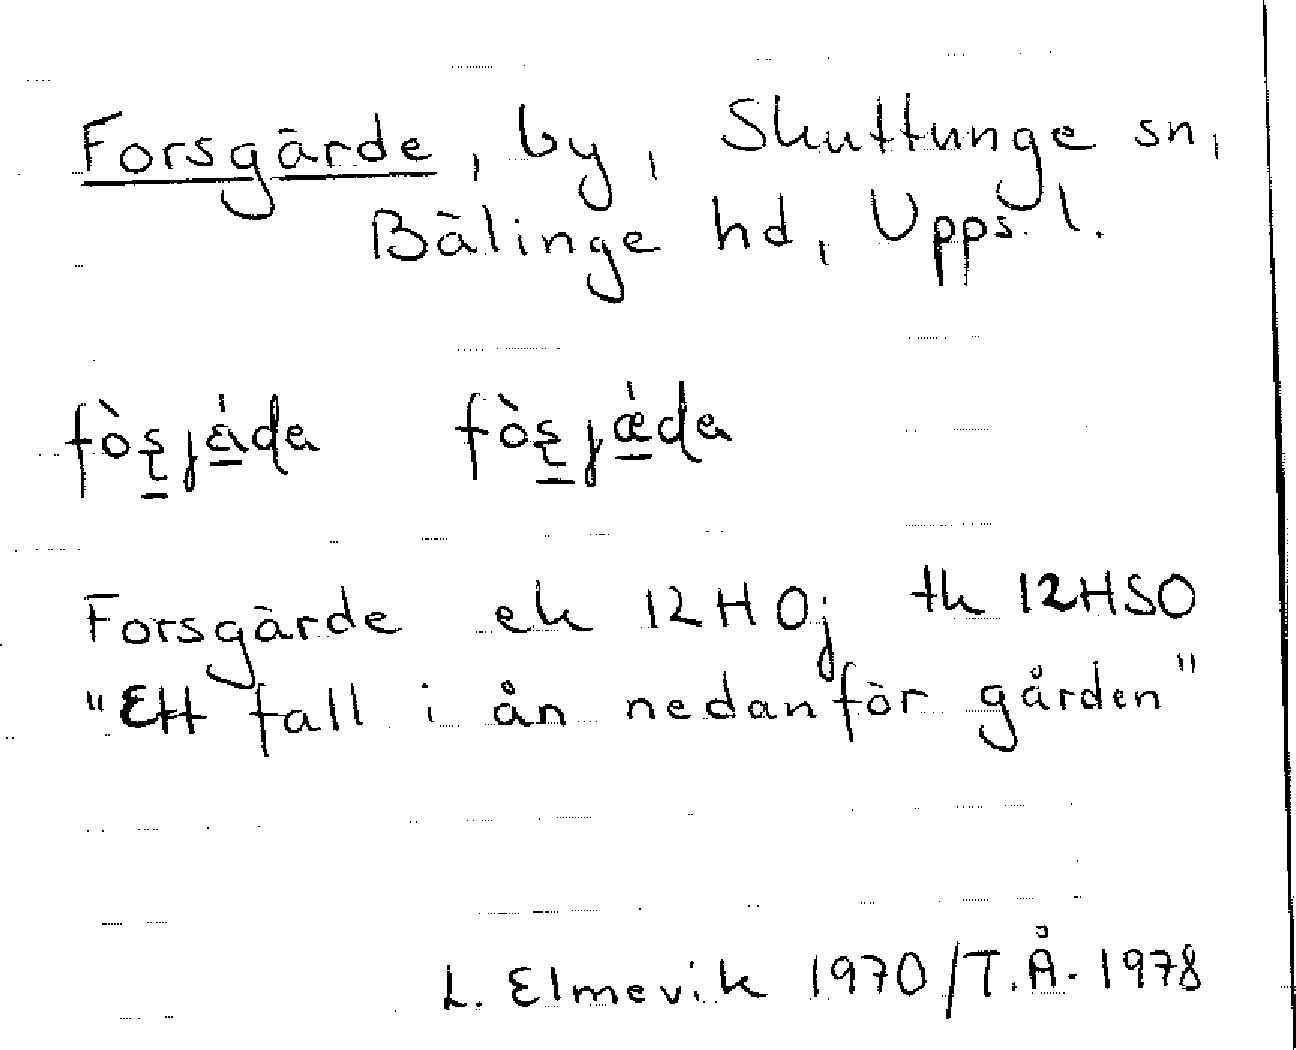 Forsgärde, by, Skuttunge sn,
Bälinge hd, Upps. l.
Forsgärde ek 12H0j tk 12HSO
"Ett fall i ån nedanför gården"
L. Elmevik 1970/T.Å. 1978